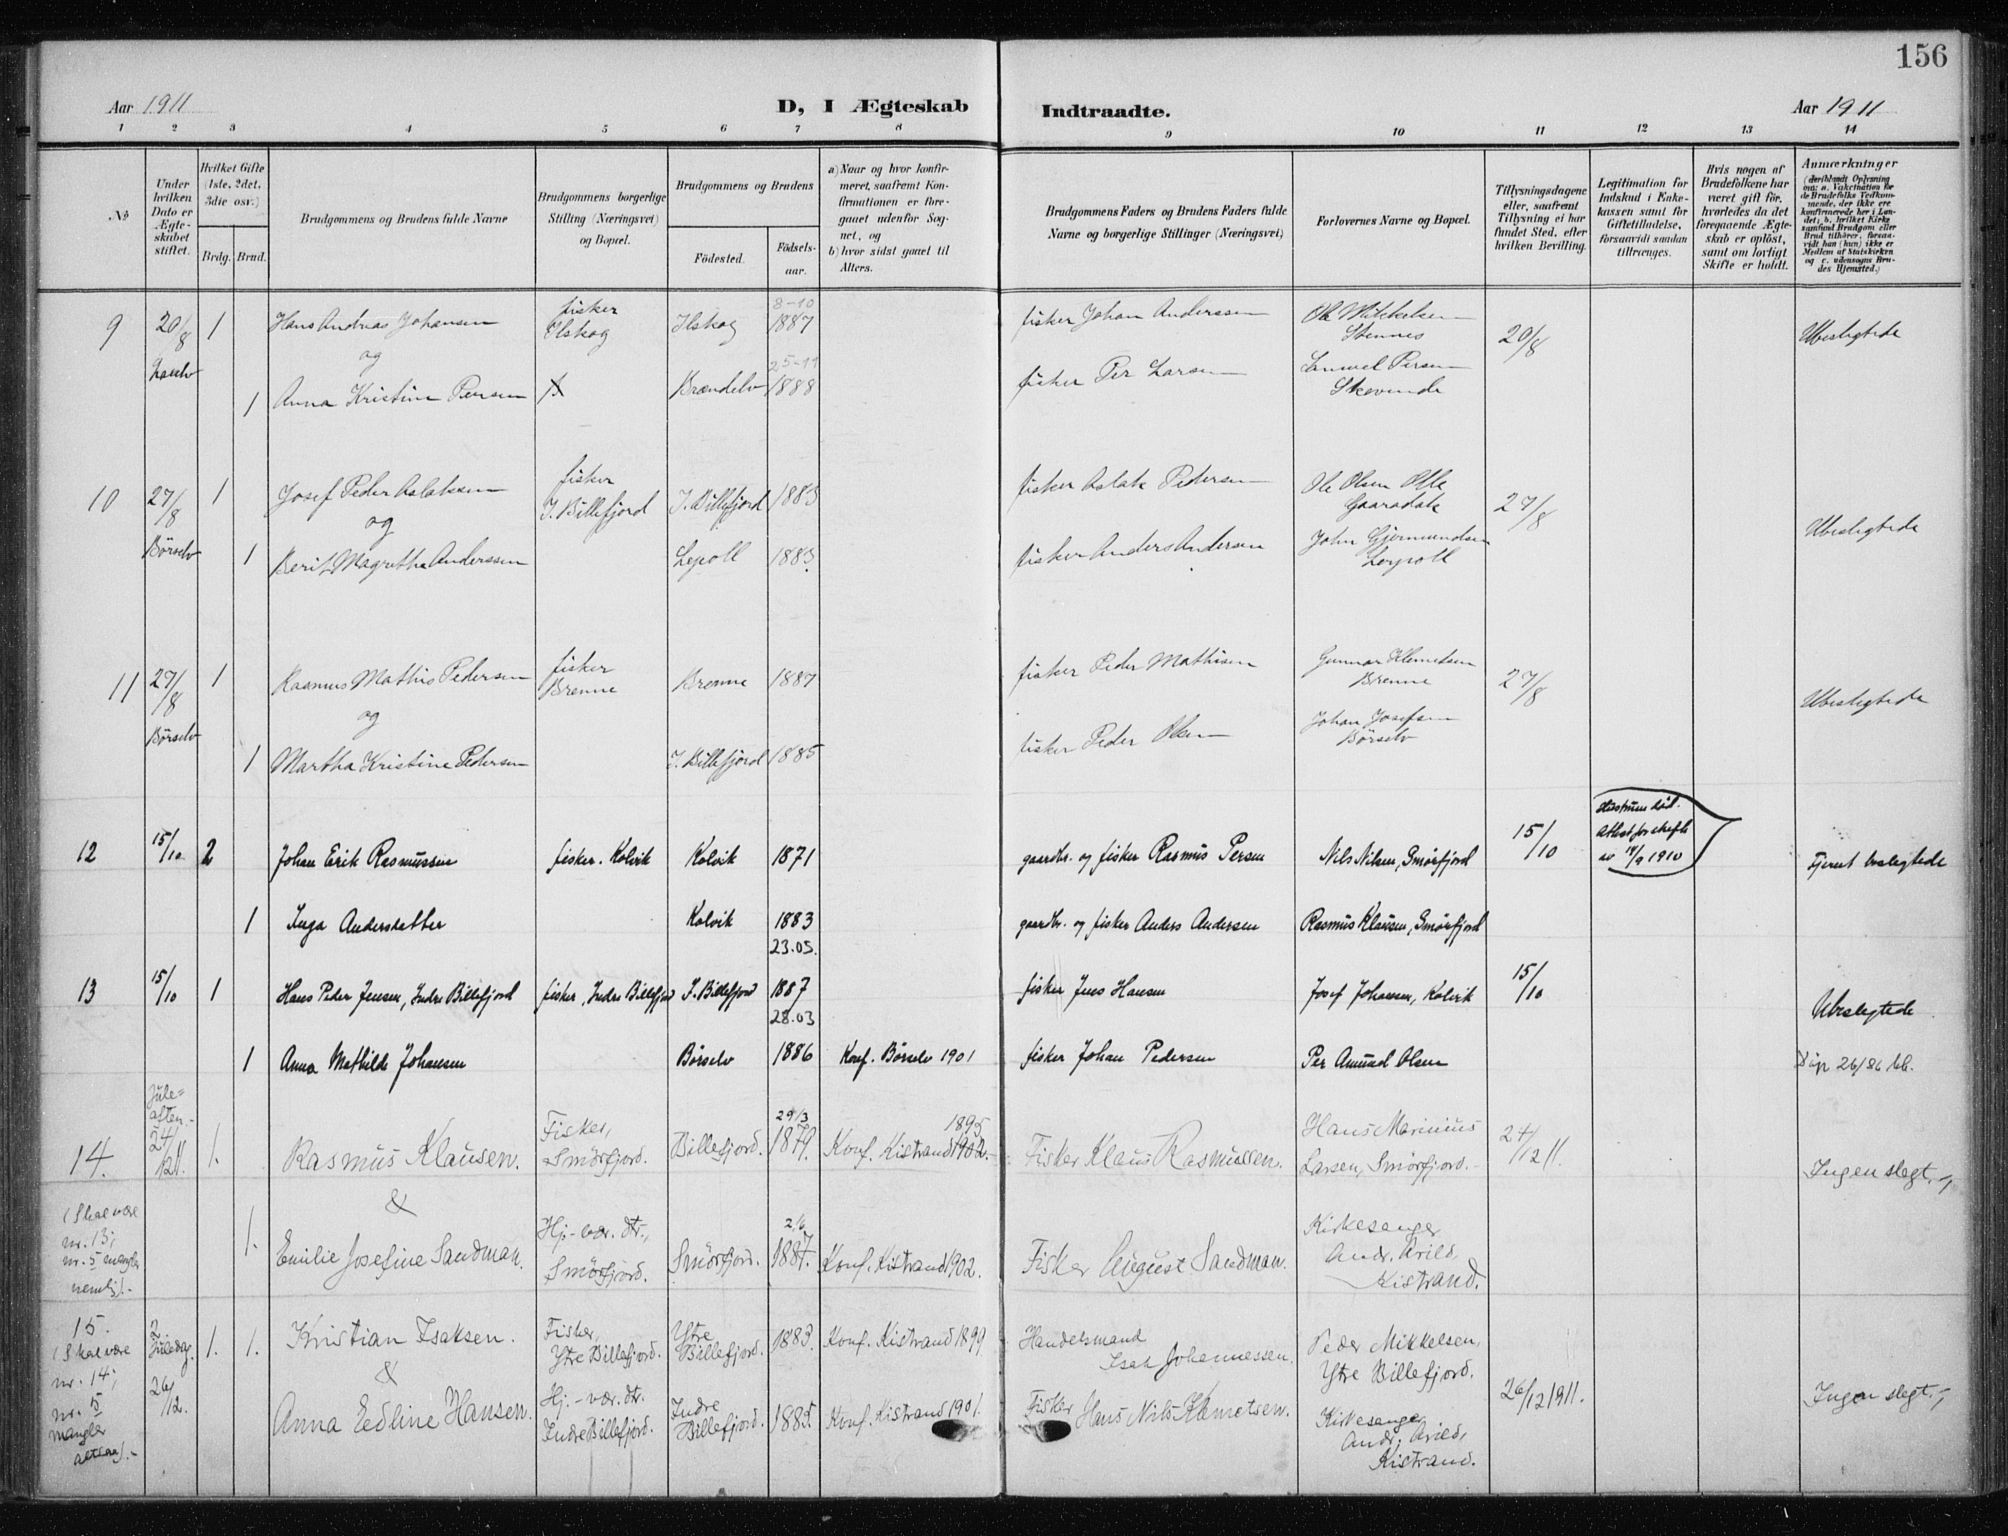 156
Aar 1911
D, I Ægteskab
Indtraadte.
Aar 1911
1 2 3 4 5 6 7 8 9 10 11 12 13 14
№
Under hvilken Dato er Ægteskabet stiftet.
Hvilket Gifte (1ste, 2det, 3die osv.)
Brdg. Brud.
Brudgommens og Brudens fulde Navne
Brudgommens borgerlige Stilling (Næringsvei) og Bopæl.
Brudgommens og Brudens
Födested.
Födselsaar.
a) Naar og hvor konfirmeret, saafremt Konfirmationen er foregaaet udenfor Sognet, og
b) hvor sidst gaaet til Alters.
Brudgommens Faders og Brudens Faders fulde Navne og borgerlige Stillinger (Næringsvei)
Forlovernes Navne og Bopæl.
Tillysningsdagene eller, saafremt Tillysning ei har fundet Sted, efter hvilken Bevilling.
Legitimation for Indskud i Enkekassen samt for Giftetilladelse, forsaavidt saadan tiltrænges.
Hvis nogen af Brudefolkene har været gift för, hvorledes da det foregaaende Ægteskab er oplöst, samt om lovligt Skifte er holdt.
Anmærkninger (deriblandt Oplysning om: a. Vakcination for de Brudefolks Vedkommende, der ikke ere konfirmerede her i Landet; b. hvilket Kirkesamfund Brudgom eller Brud tilhörer, forsaavidt han (hun) ikke er Medlem af Statskirken og c. udensogns Brudes Hjemsted.)
9 20/8 1 Hans Andreas Johansen fisker Ilskog Ilskog 8-10 1887 fisker Johan Anderssen Ole Mikkelsen Stennes 20/8 Ubeslegtede
og
1 Anna Kristine Persen Brændelv 25-11 1888 fisker Per Larsen Samuel Persen
10 27/8 Börselv 1 Josef Peder Aslaksen fisker I. Billefjord I. Billefjord 1883 fisker Aslak Pedersen Ole Olsen 27/8 Ubeslegtede
og
1 Berit Magretha Anderssen Lepoll 1883 fisker Anders Andersen John Gjermundsen Leypoll
11 27/8 Börselv 1 Rasmus Mathis Pedersen fisker Brenne Brenne 1887 fisker Peder Mathisen Gunnar Klemetsen Brenne 27/8 Ubeslegtede
og
1 Martha Kristine Pedersen I. Billefjord 1885 fisker Peder Olsen Johan Josefsen Börselv
12 15/10 2 Johan Erik Rasmussen fisker. Kolvik Kolvik 1871 gaardbr. og fisker Rasmus Persen Nils Nilsen, Smörfjord 15/10 Hustruen död. Attest for skifte 1910 Fjernt beslegtede
1 Inga Andersdatter Kolvik 1883 23.05. gaardbr. og fisker Anders Andersen Rasmus Klausen, Smörfjord
13 15/10 1 Hans Peder Jensen, Indre Billefjord fisker, Indre Billefjord I. Billefjord 1887 28.03 fisker Jens Hansen Josef Johansen, Kolvik 15/10 Ubeslegtede
1 Anna Mathilde Johansen Börselv 1886 Konf. Börselv 1901 fisker Johan Pedersen Per Amund Olsen Dåp 26/86
14. Juleaften. 24/12 11. 1. Rasmus Klausen. Fisker, Smörfjord. Billefjord. 29/3 1879. Konf. Kistrand 1902. 1895 Fisker Klaus Rasmussen. Hans Marinius Larsen, Smörfjord. 24/12 11. Ingen slegt.
&
(Skal være nr. 13; nr. 5 mangler nemlig). 1. Emilie Josefine Sandman. Hj.-vær. dtr., Smörfjord. Smörfjord. 2/6 1887. Konf. Kistrand 1902. Fisker August Sandman. Kirkesanger Andr. Arild, Kistrand.
15. (Skal være nr. 14; nr. 5 mangler altsaa). 2. Juledag. 26/12. 1. 1. Kristian Isaksen. Fisker, Ytre Billefjord. Ytre Billefjord. 1883. Konf. Kistrand 1899 Handelsmand Isak Johannessen. Peder Mikkelsen, Ytre Billefjord.
&
Anna Eedline Hansen. Hj.-vær. dtr. Indre Billefjord. Indre Billefjord. 1885. Konf. Kistrand 1901. Fisker Hans Nils Klemetsen. Kirkesanger Andr. Arild, Kistrand. 26/12 1911. Ingen slegt.